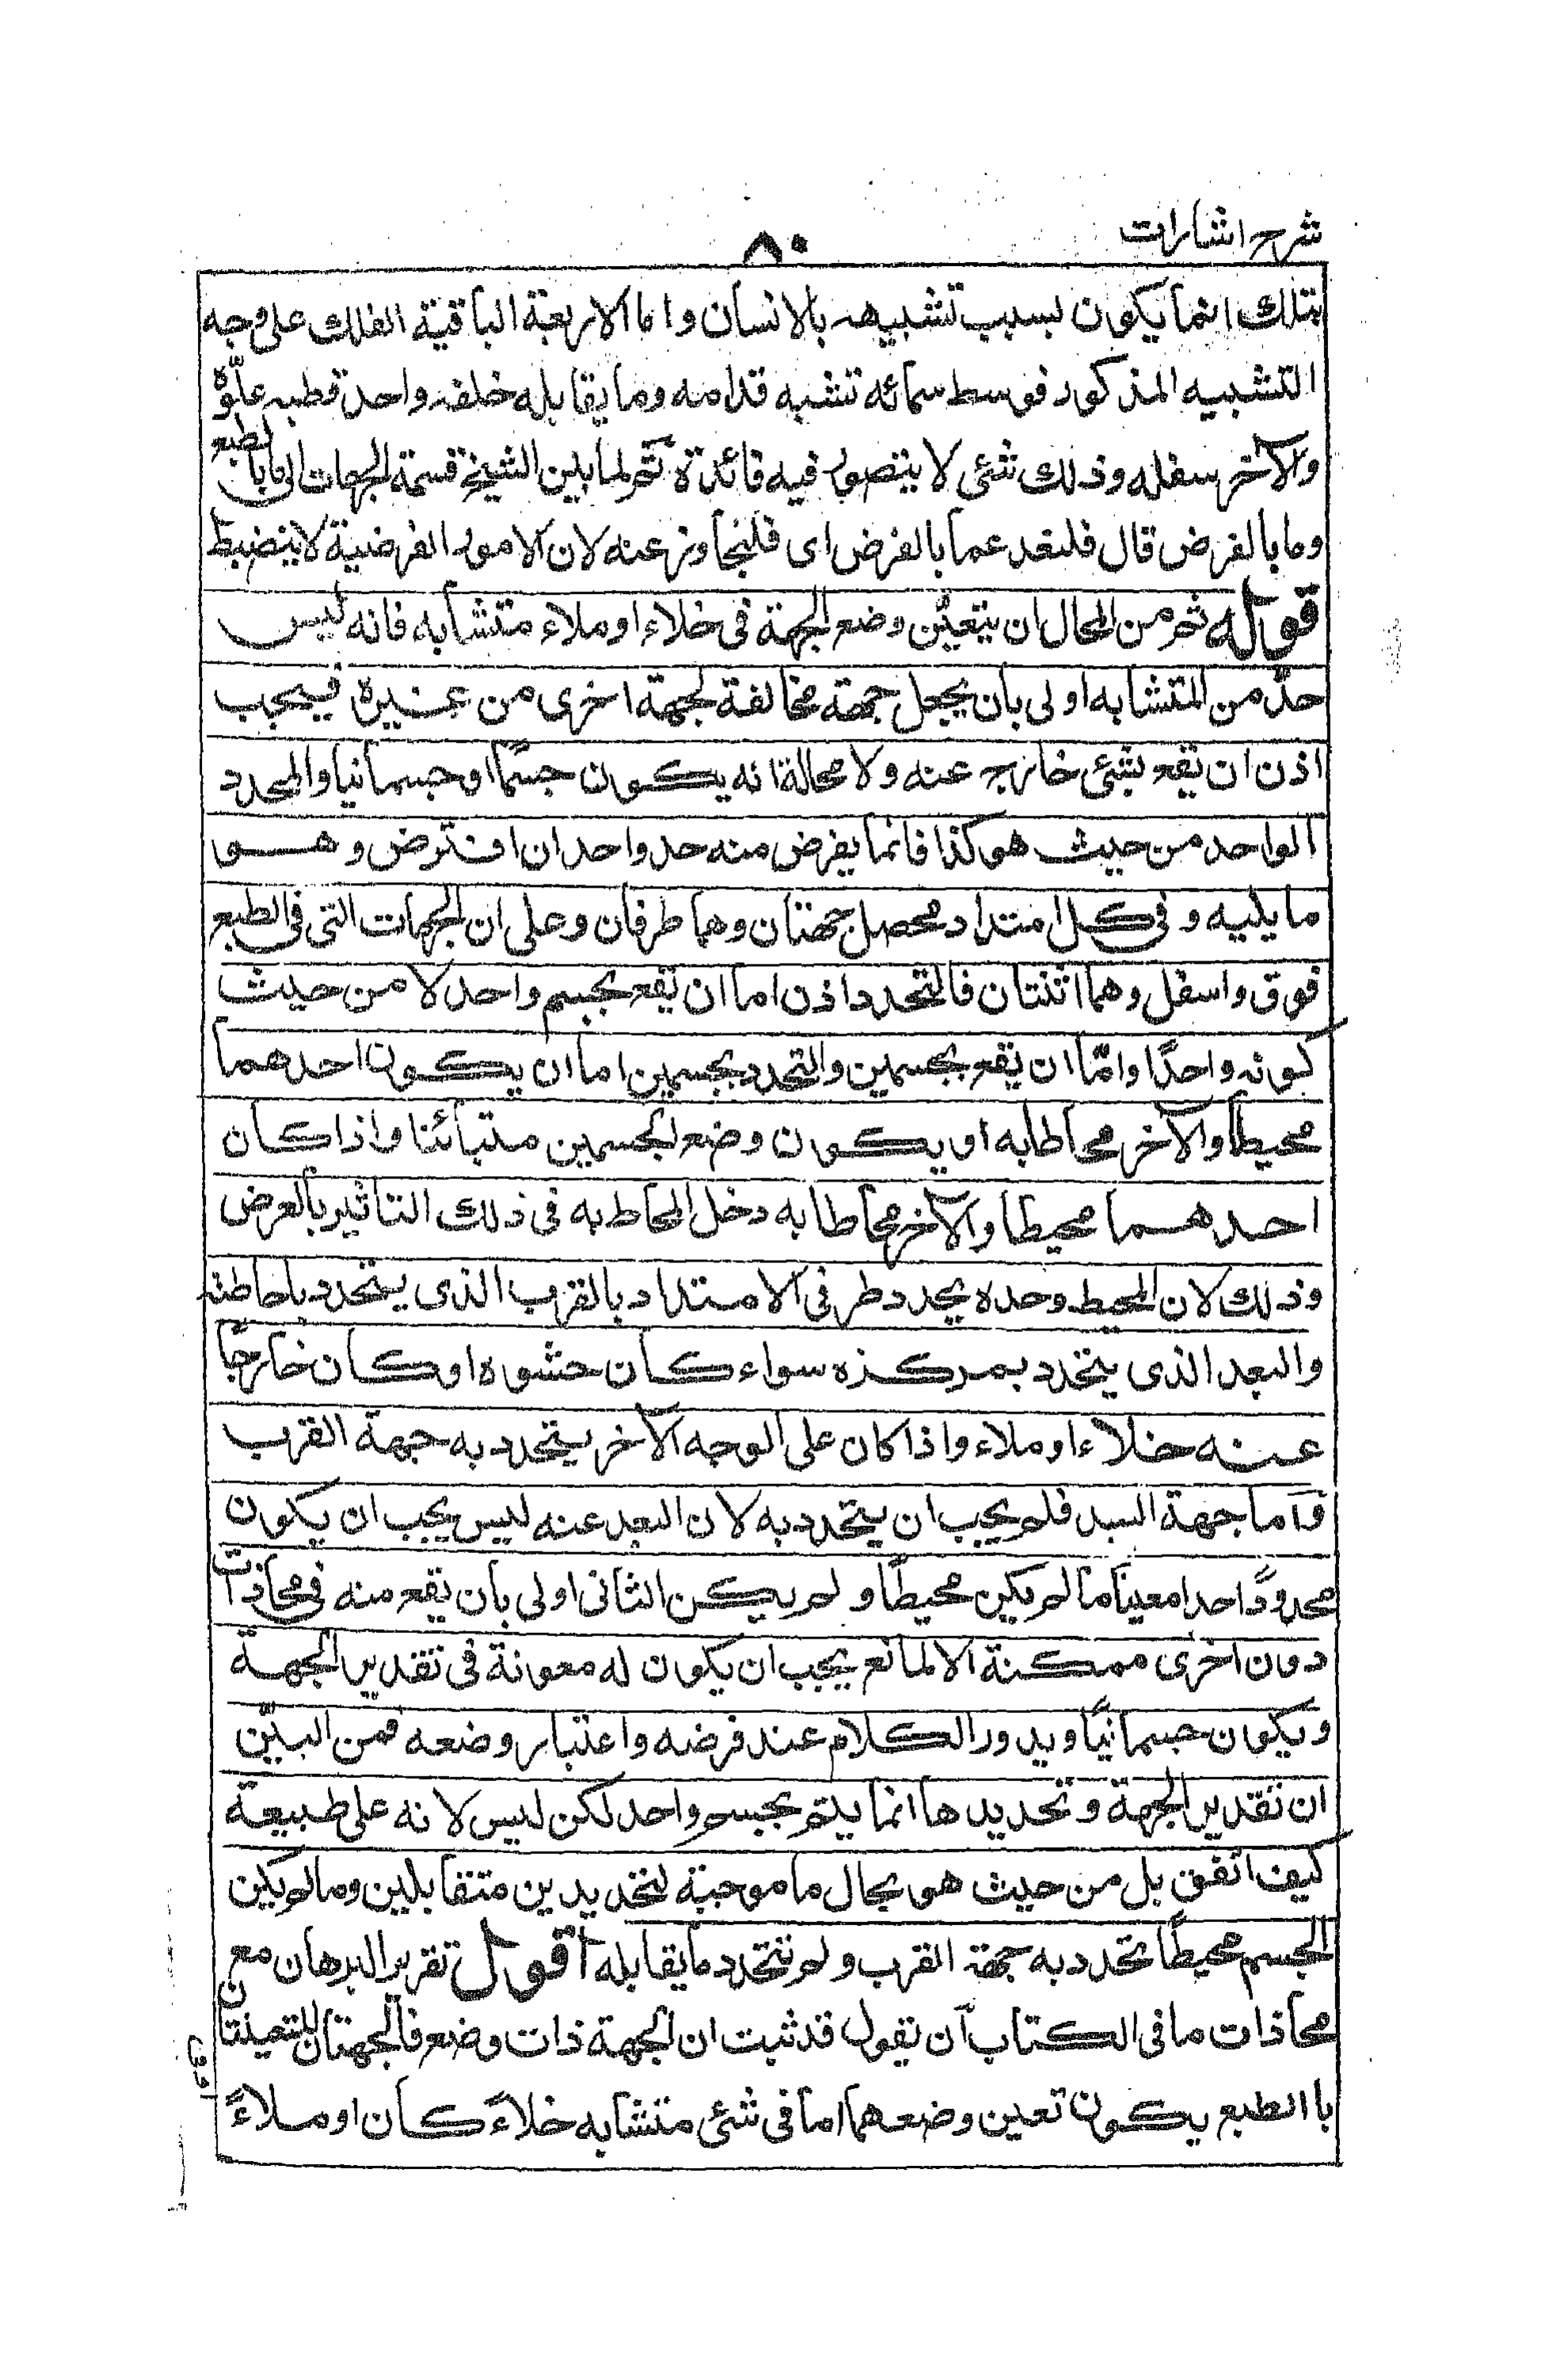 شرح اشارات
٨٠
بتلك انما يكون بسبب تشبيهه بالانسان واما الاربعة الباقية الفلك على وجه
التشبيه المذكور فوسط سمائه تشبه قدامه وما يقابله خلفه واحد قطبيه علوّه
والآخر سفله وذلك شئ لا يتصور فيه فائدة ثم لما بين الشيخ قسمة الجهات الى ما بالطبع
وما بالفرض قال فلنعد عما بالفرض اى فلنتجاوز عنه لان الامور الفرضية لا ينضبط
قوله ثم من المحال ان يتعيّن وضع الجهة فى خلاء او ملاء متشابه فانه ليس
حدّ من المتشابه اولى بان يجعل جهة مخالفة لجهة اخرى من غيره فيجب
اذن ان يقع بشئ خارج عنه ولا محالة انه يكون جسمًا او جسمانيا والمحدد
الواحد من حيث هو كذا فانما يفرض منه حد واحد ان افترض وهو
ما يليه و فى كل امتداد محصل جهتان وهما طرفان وعلى ان الجهات التى فى الطبع
فوق واسفل وهما اثنتان فالتحدد اذن اما ان يقع بجسم واحد لا من حيث
كونه واحدًا وامّا ان يقع بجسمين والتحدد بجسمين اما ان يكون احدهما
محيطا والآخر محاطا به او يكون وضع الجسمين متبائنا واذا كان
احدهما محيطا والآخر محاطا به دخل المحاط به فى ذلك التاثير بالعرض
وذلك لان المحيط وحده يحدد طرفى الامتداد بالقرب الذى يتحدد باحاطته
والبعد الذى يتحدد بمركزه سواء كان حشوه او كان خارجًا
عنه خلاء او ملاء واذا كان على الوجه الآخر يتحدد به جهة القرب
وَاما جهة البعد فلم يجب ان يتحدد به لان البعد عنه ليس يجب ان يكون
محدودًا حدا معينا ما لم يكن محيطًا و لم يكن الثانى اولى بان يقع منه فى محاذات
دون اخرى ممكنة الا لمانع يجب ان يكون له معونة فى تقدير الجهة
ويكون جسمانيًا ويدور الكلام عند فرضه واعتبار وضعه فمن البيّن
ان تقدير الجهة وتحديدها انما يتم بجسم واحد لكن ليس لانه على طبيعة
كيف اتفق بل من حيث هو بحال ما موجبة لتحديدين متقابلين وما لم يكن
الجسم محيطًا تحدد به جهة القرب ولم تتحدد ما يقابله اقول تقرير البرهان مع
محاذات ما فى الكتاب ان يقول قد ثبت ان الجهة ذات وضع فالجهتان المتعينتان
باالطبع يكون تعين وضعهما اما فى شئ متشابه خلاءً كان او ملاءً